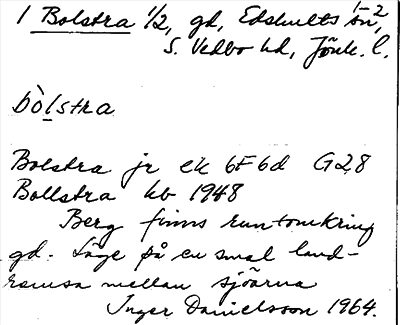 1 Bolstra 1/2, gd, Edshults sn, 1-2
S. Vedbo hd, Jönk. l.
bòlstra
Bolstra jr ek 6F 6d G28
Bollstra kb 1948
Berg finns runtomkring
gd. Läge på en smal land-
remsa mellan sjöarna
Inger Danielsson 1964.